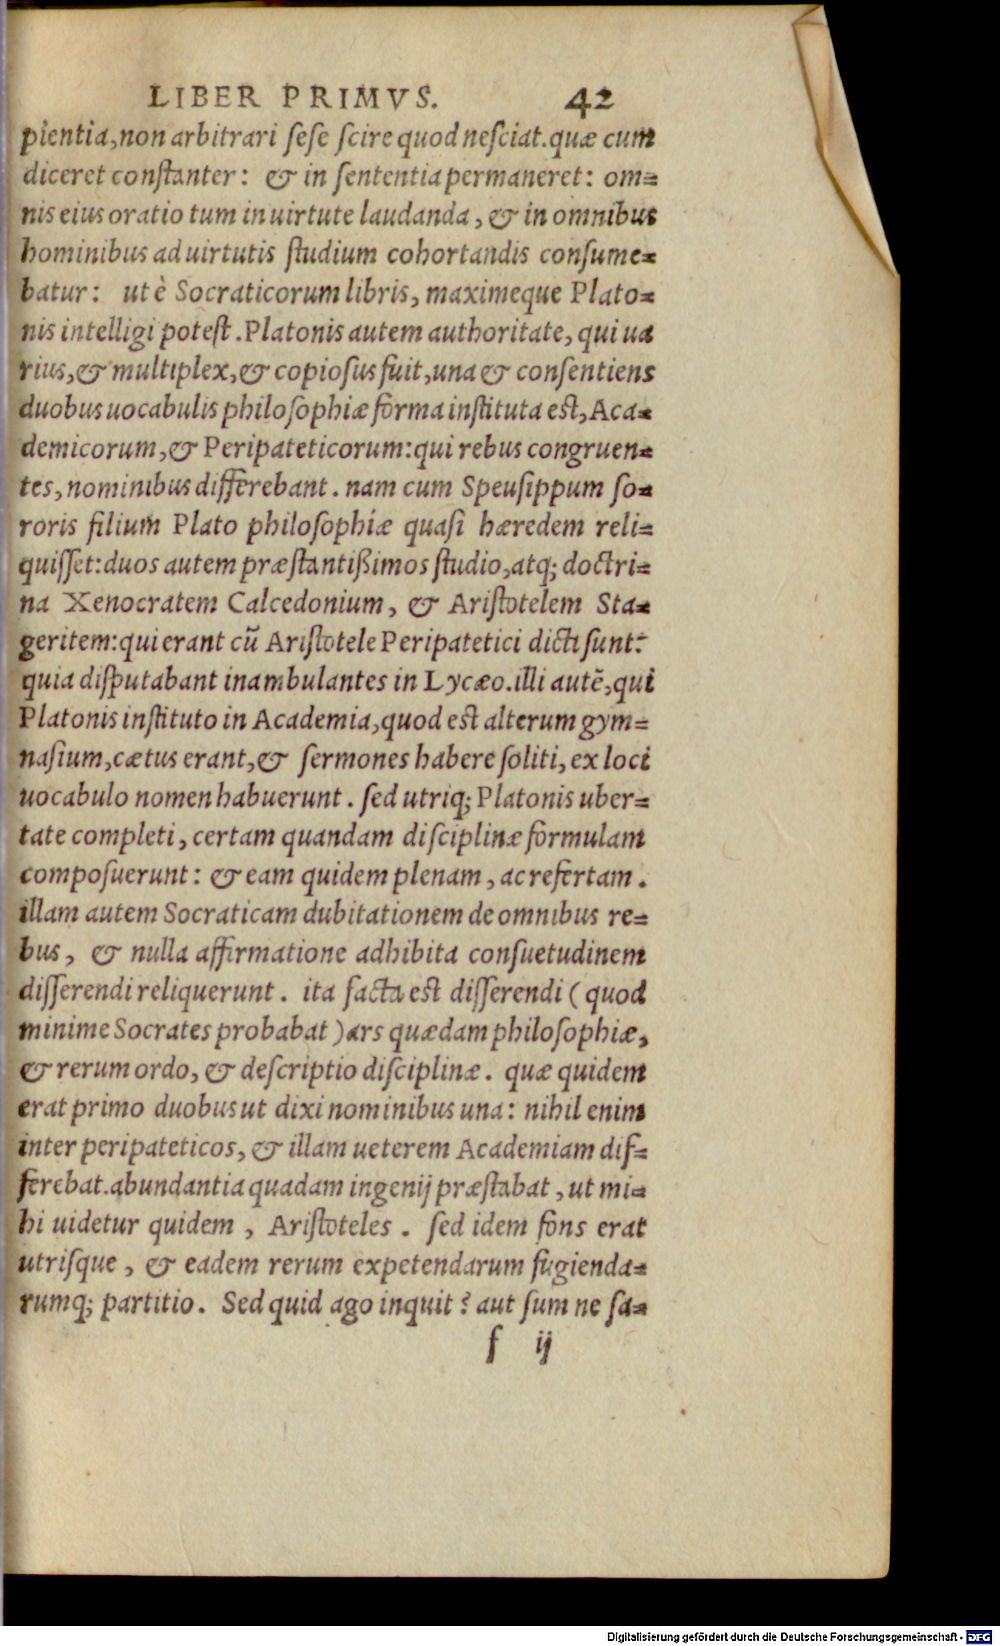 LIBER PRIMVS. 42
pientia, non arbitrari sese scire quod nesciat. quæ cum
diceret constanter: & in sententia permaneret: om=
nis eius oratio tum in uirtute laudanda, & in omnibus
hominibus ad uirtutis studium cohortandis consume=
batur: ut è Socraticorum libris, maximeque Plato=
nis intelligi potest. Platonis autem authoritate, qui ua
rius, & multiplex, & copiosus fuit, una & consentiens
duobus uocabulis philosophiæ forma instituta est, Aca=
demicorum, & Peripateticorum: qui rebus congruen=
tes, nominibus differebant. nam cum Speusippum so=
roris filium Plato philosophiæ quasi hæredem reli=
quisset: duos autem præstantißimos studio, atq; doctri=
na Xenocratem Calcedonium, & Aristotelem Sta=
geritem: qui erant cũ Aristotele Peripatetici dicti sunt:
quia disputabant inambulantes in Lycæo. illi autẽ, qui
Platonis instituto in Academia, quod est alterum gym=
nasium, cætus erant, & sermones habere soliti, ex loci
uocabulo nomen habuerunt. sed utriq; Platonis uber=
tate completi, certam quandam disciplinæ formulam
composuerunt: & eam quidem plenam, ac refertam.
illam autem Socraticam dubitationem de omnibus re=
bus, & nulla affirmatione adhibita consuetudinem
disserendi reliquerunt. ita facta est disserendi (quod
minime Socrates probabat) ars quædam philosophiæ,
& rerum ordo, & descriptio disciplinæ. quæ quidem
erat primo duobus ut dixi nominibus una: nihil enim
inter peripateticos, & illam ueterem Academiam dif=
ferebat. abundantia quadam ingenij præstabat, ut mi=
hi uidetur quidem, Aristoteles. sed idem fons erat
utrisque, & eadem rerum expetendarum fugienda=
rumq; partitio. Sed quid ago inquit? aut sum ne sa=
f ij
Digitalisierung gefördert durch die Deutsche Forschungsgemeinschaft - DFG